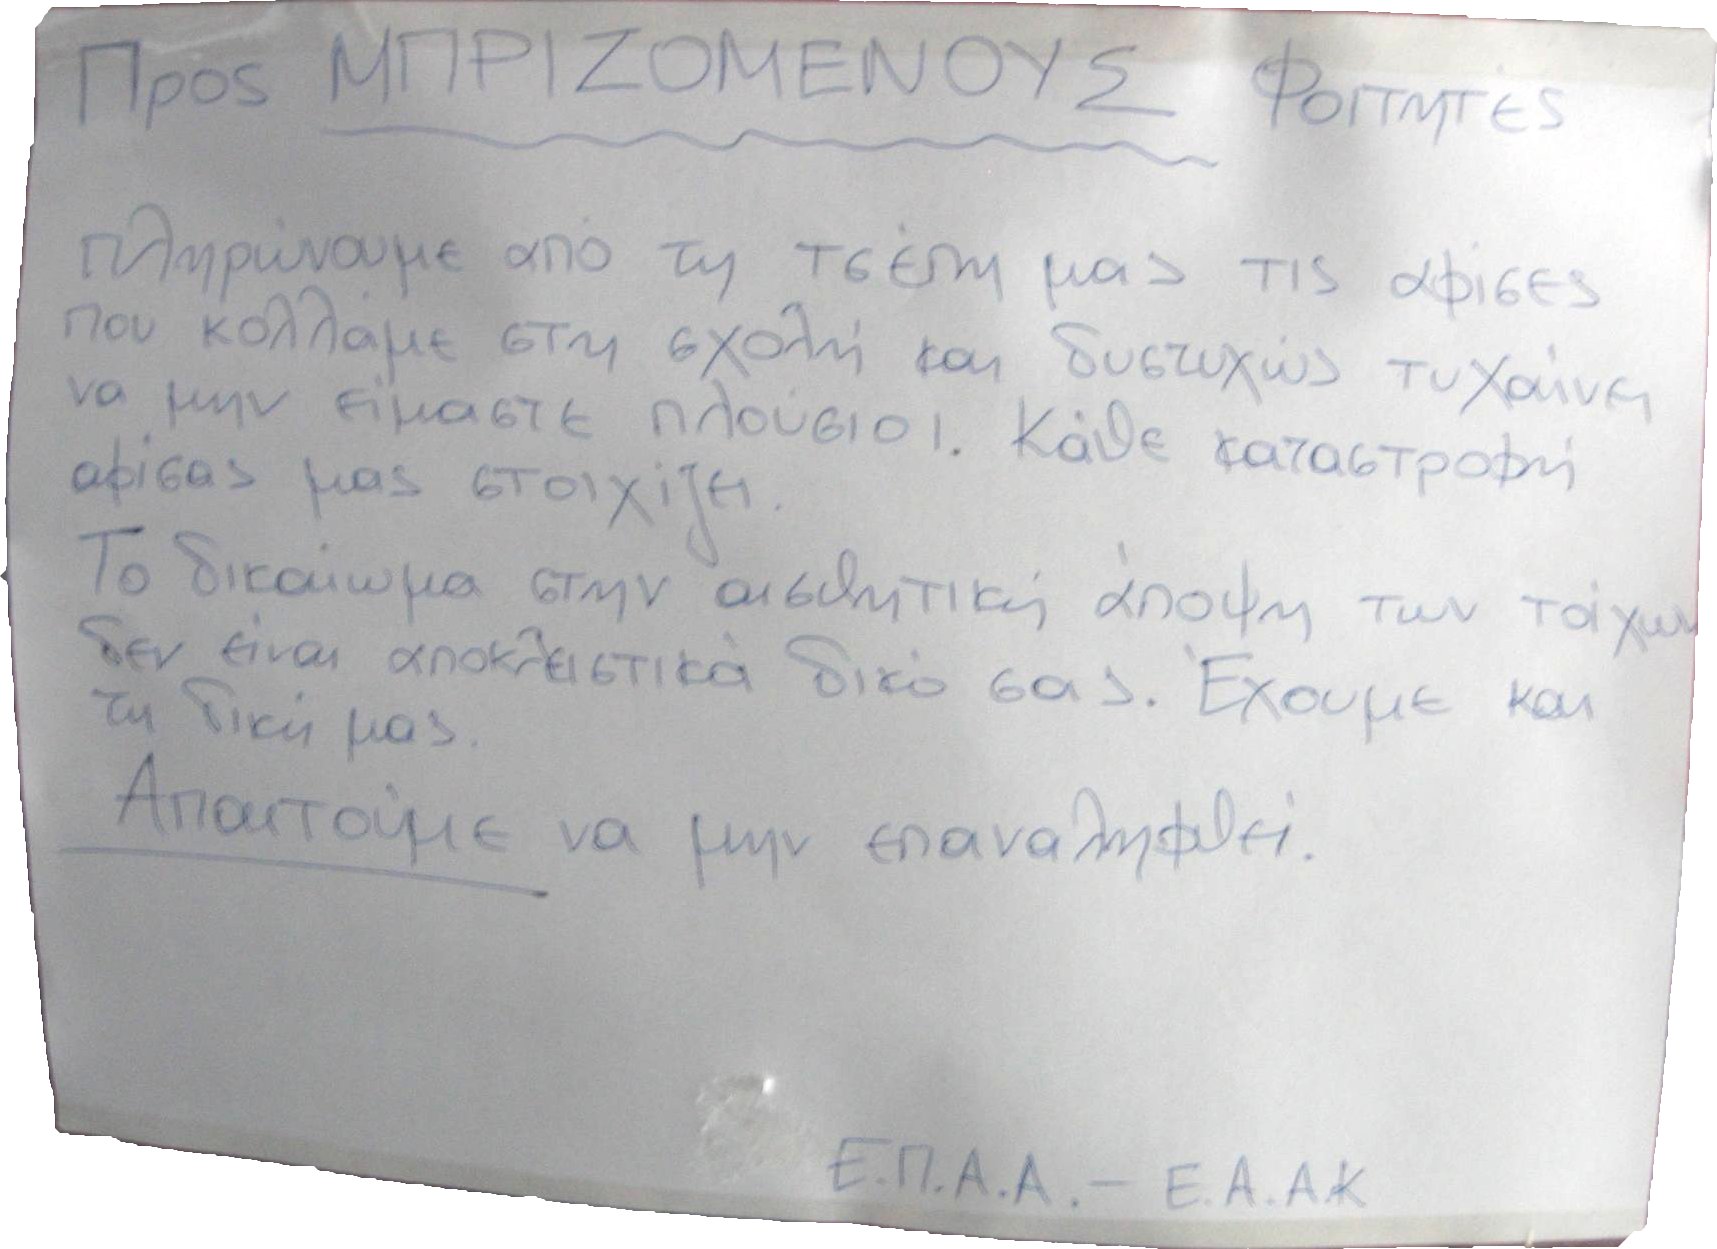 Προς ΜΠΡΙΖΟΜΕΝΟΥΣ Φοιτητές
Πληρώνουμε από τη τσέπη μας τις αφίσες
που κολλάμε στη σχολή και δυστυχώς τυχαίνει
να μην είμαστε πλούσιοι. Κάθε καταστροφή
αφίσας μας στοιχίζει.
Το δικαίωμα στην αισθητική άποψη των τοίχων
δεν είναι αποκλειστικά δικό σας. Έχουμε και
τη δική μας.
Απαιτούμε να μην επαναληφθεί.
Ε.Π.Α.Α. – Ε.Α.Α.Κ